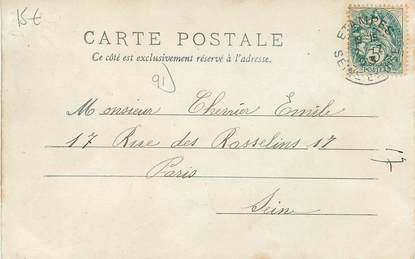 15€
CARTE POSTALE
Ce côté est exclusivement réservé à l'adresse.
91
ETAMPES
SEINE-ET-OISE
5
Monsieur Cherrier Emile
17 Rue des Rasselins 17
Paris
Sein
17